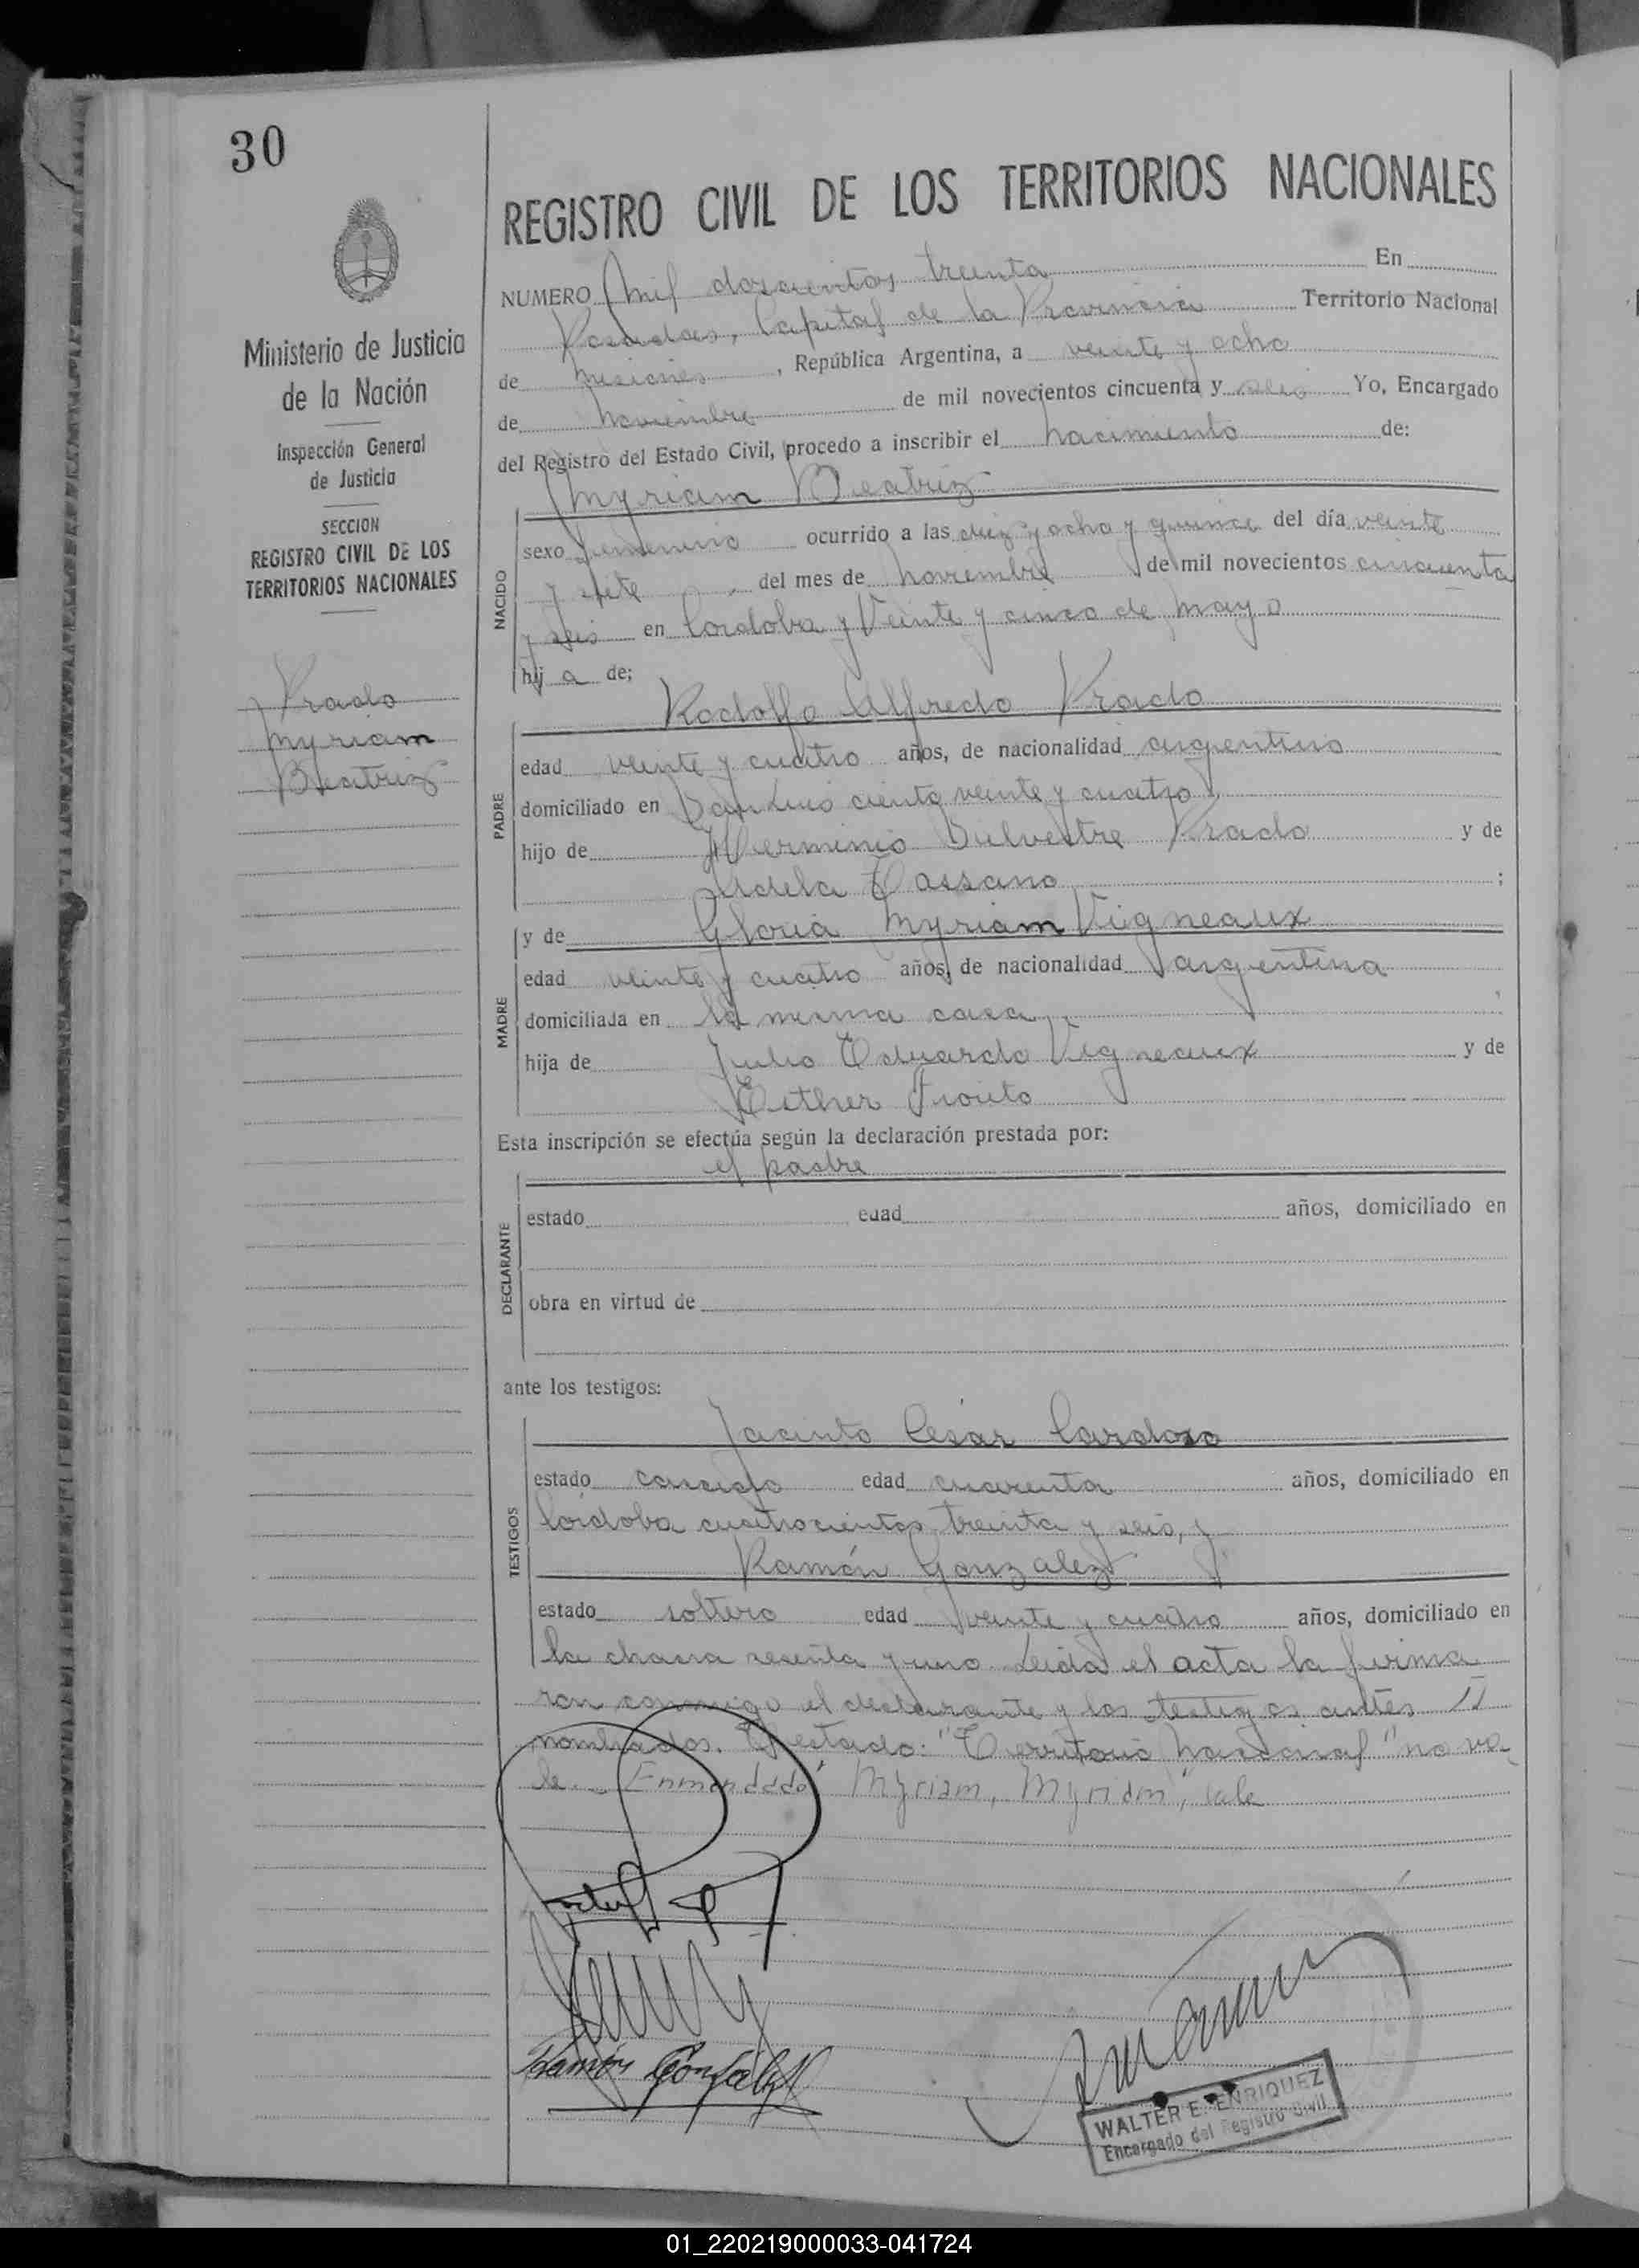 30
Ministerio de Justicia
de la Nación
Inspección General
de Justicia
SECCION
REGISTRO CIVIL DE LOS
TERRITORIOS NACIONALES
Prado
Myriam
Beatriz
REGISTRO CIVIL DE LOS TERRITORIOS NACIONALES
NUMERO Mil doscientos treinta En
Posadas, Capital de la Provincia Territorio Nacional
de Misiones, República Argentina, a veinte y ocho
de noviembre de mil novecientos cincuenta y seis Yo, Encargado
del Registro del Estado Civil, procedo a inscribir el nacimiento de:
Myriam Beatriz
NACIDO
sexo femenino ocurrido a las diez y ocho y quince del día veinte
y siete del mes de noviembre de mil novecientos cincuenta
y seis en Cordoba y Veinte y cinco de mayo
hij a de;
Rodolfo Alfredo Prado
PADRE
edad veinte y cuatro años, de nacionalidad argentino
domiciliado en San Luis ciento veinte y cuatro
hijo de Herminio Sulvestre Prado y de
Adela Tassano ;
y de Gloria Myriam Vigneaux
MADRE
edad veinte y cuatro años, de nacionalidad argentina
domiciliada en la misma casa,
hija de Julio Eduardo Vigneaux y de
Esther Fiorito
Esta inscripción se efectúa según la declaración prestada por:
el padre
DECLARANTE
estado edad años, domiciliado en
obra en virtud de
ante los testigos:
Jacinto César Cardozo
TESTIGOS
estado casado edad cuarenta años, domiciliado en
Cordoba cuatrocientos treinta y seis, y
Ramón Gonzalez
estado soltero edad veinte y cuatro años, domiciliado en
la chacra sesenta y uno. Leida el acta la firma
ron conmigo el declarante y los testigos antes
nombrados. Testado: "Territorio Nacional" no va
le. Enmendado "Myriam, Myriam", vale
Ramón González
WALTER E. ENRIQUEZ
Encargado del Registro Civil
01_220219000033-041724